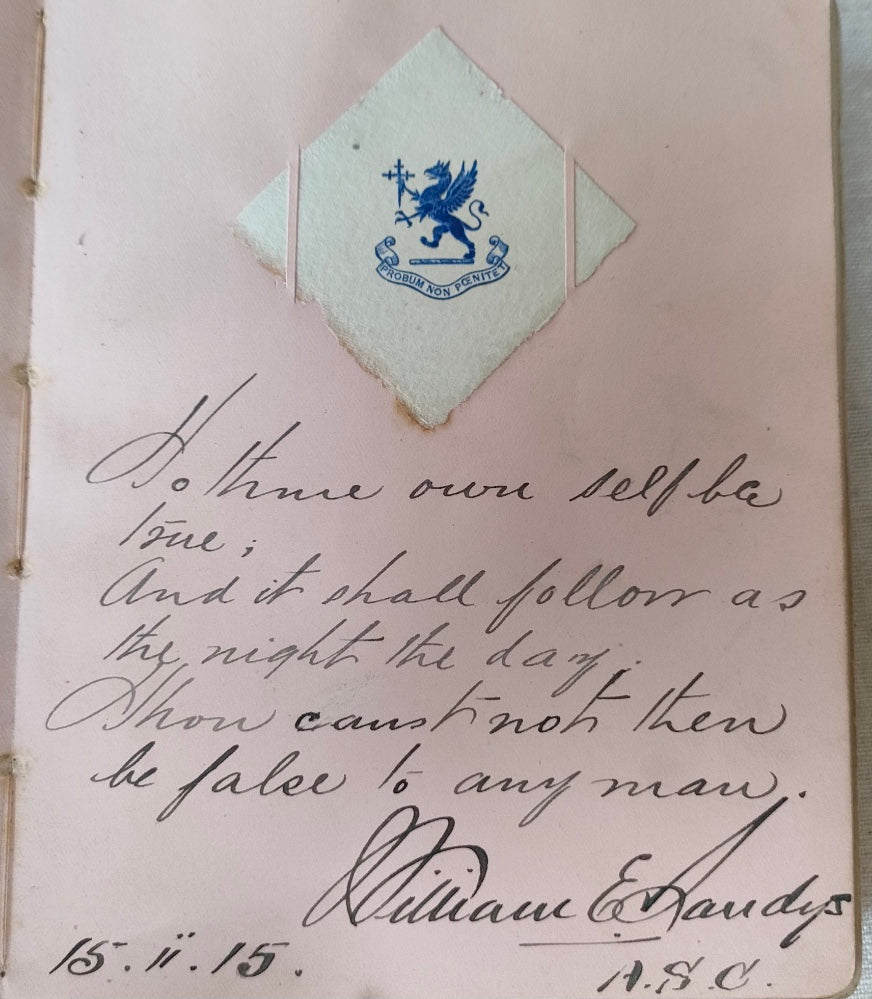 PROBUM NON PŒNITET
To thine own self be
true;
And it shall follow as
the night the day.
Thou canst not then
be false to any man.
William E Sandys
15.ii.15.
A.S.C.